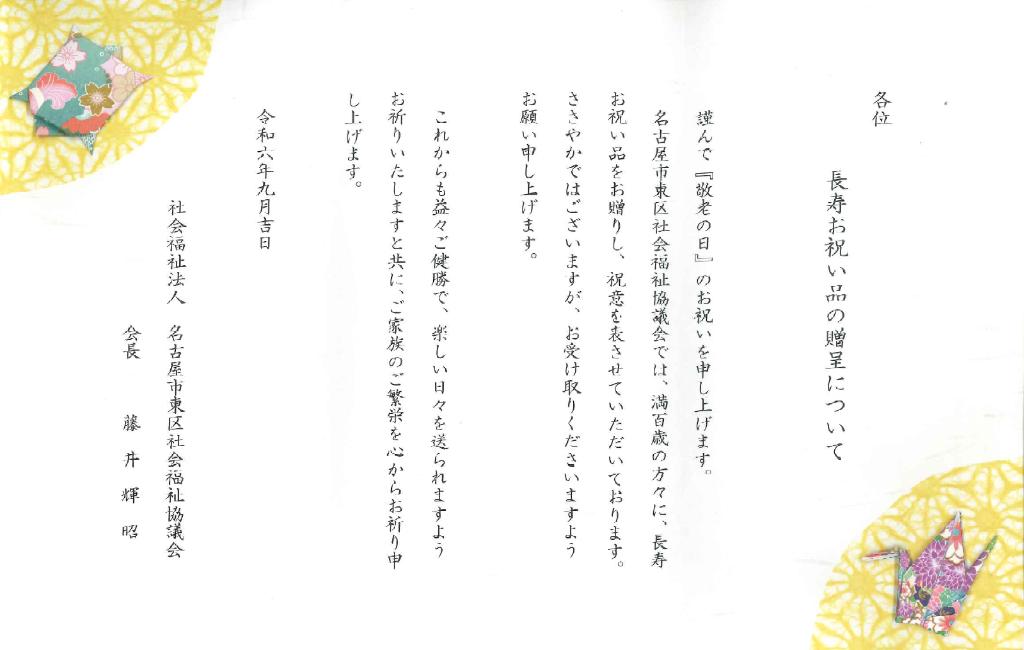 各位
長寿お祝い品の贈呈について
謹んで『敬老の日』のお祝いを申し上げます。
名古屋市東区社会福祉協議会では、満百歳の方々に、長寿
お祝い品をお贈りし、祝意を表させていただいております。
ささやかではございますが、お受け取りくださいますよう
お願い申し上げます。
これからも益々ご健勝で、楽しい日々を送られますよう
お祈りいたしますと共に、ご家族のご繁栄を心からお祈り申
し上げます。
令和六年九月吉日
社会福祉法人 名古屋市東区社会福祉協議会
会長 藤井輝昭